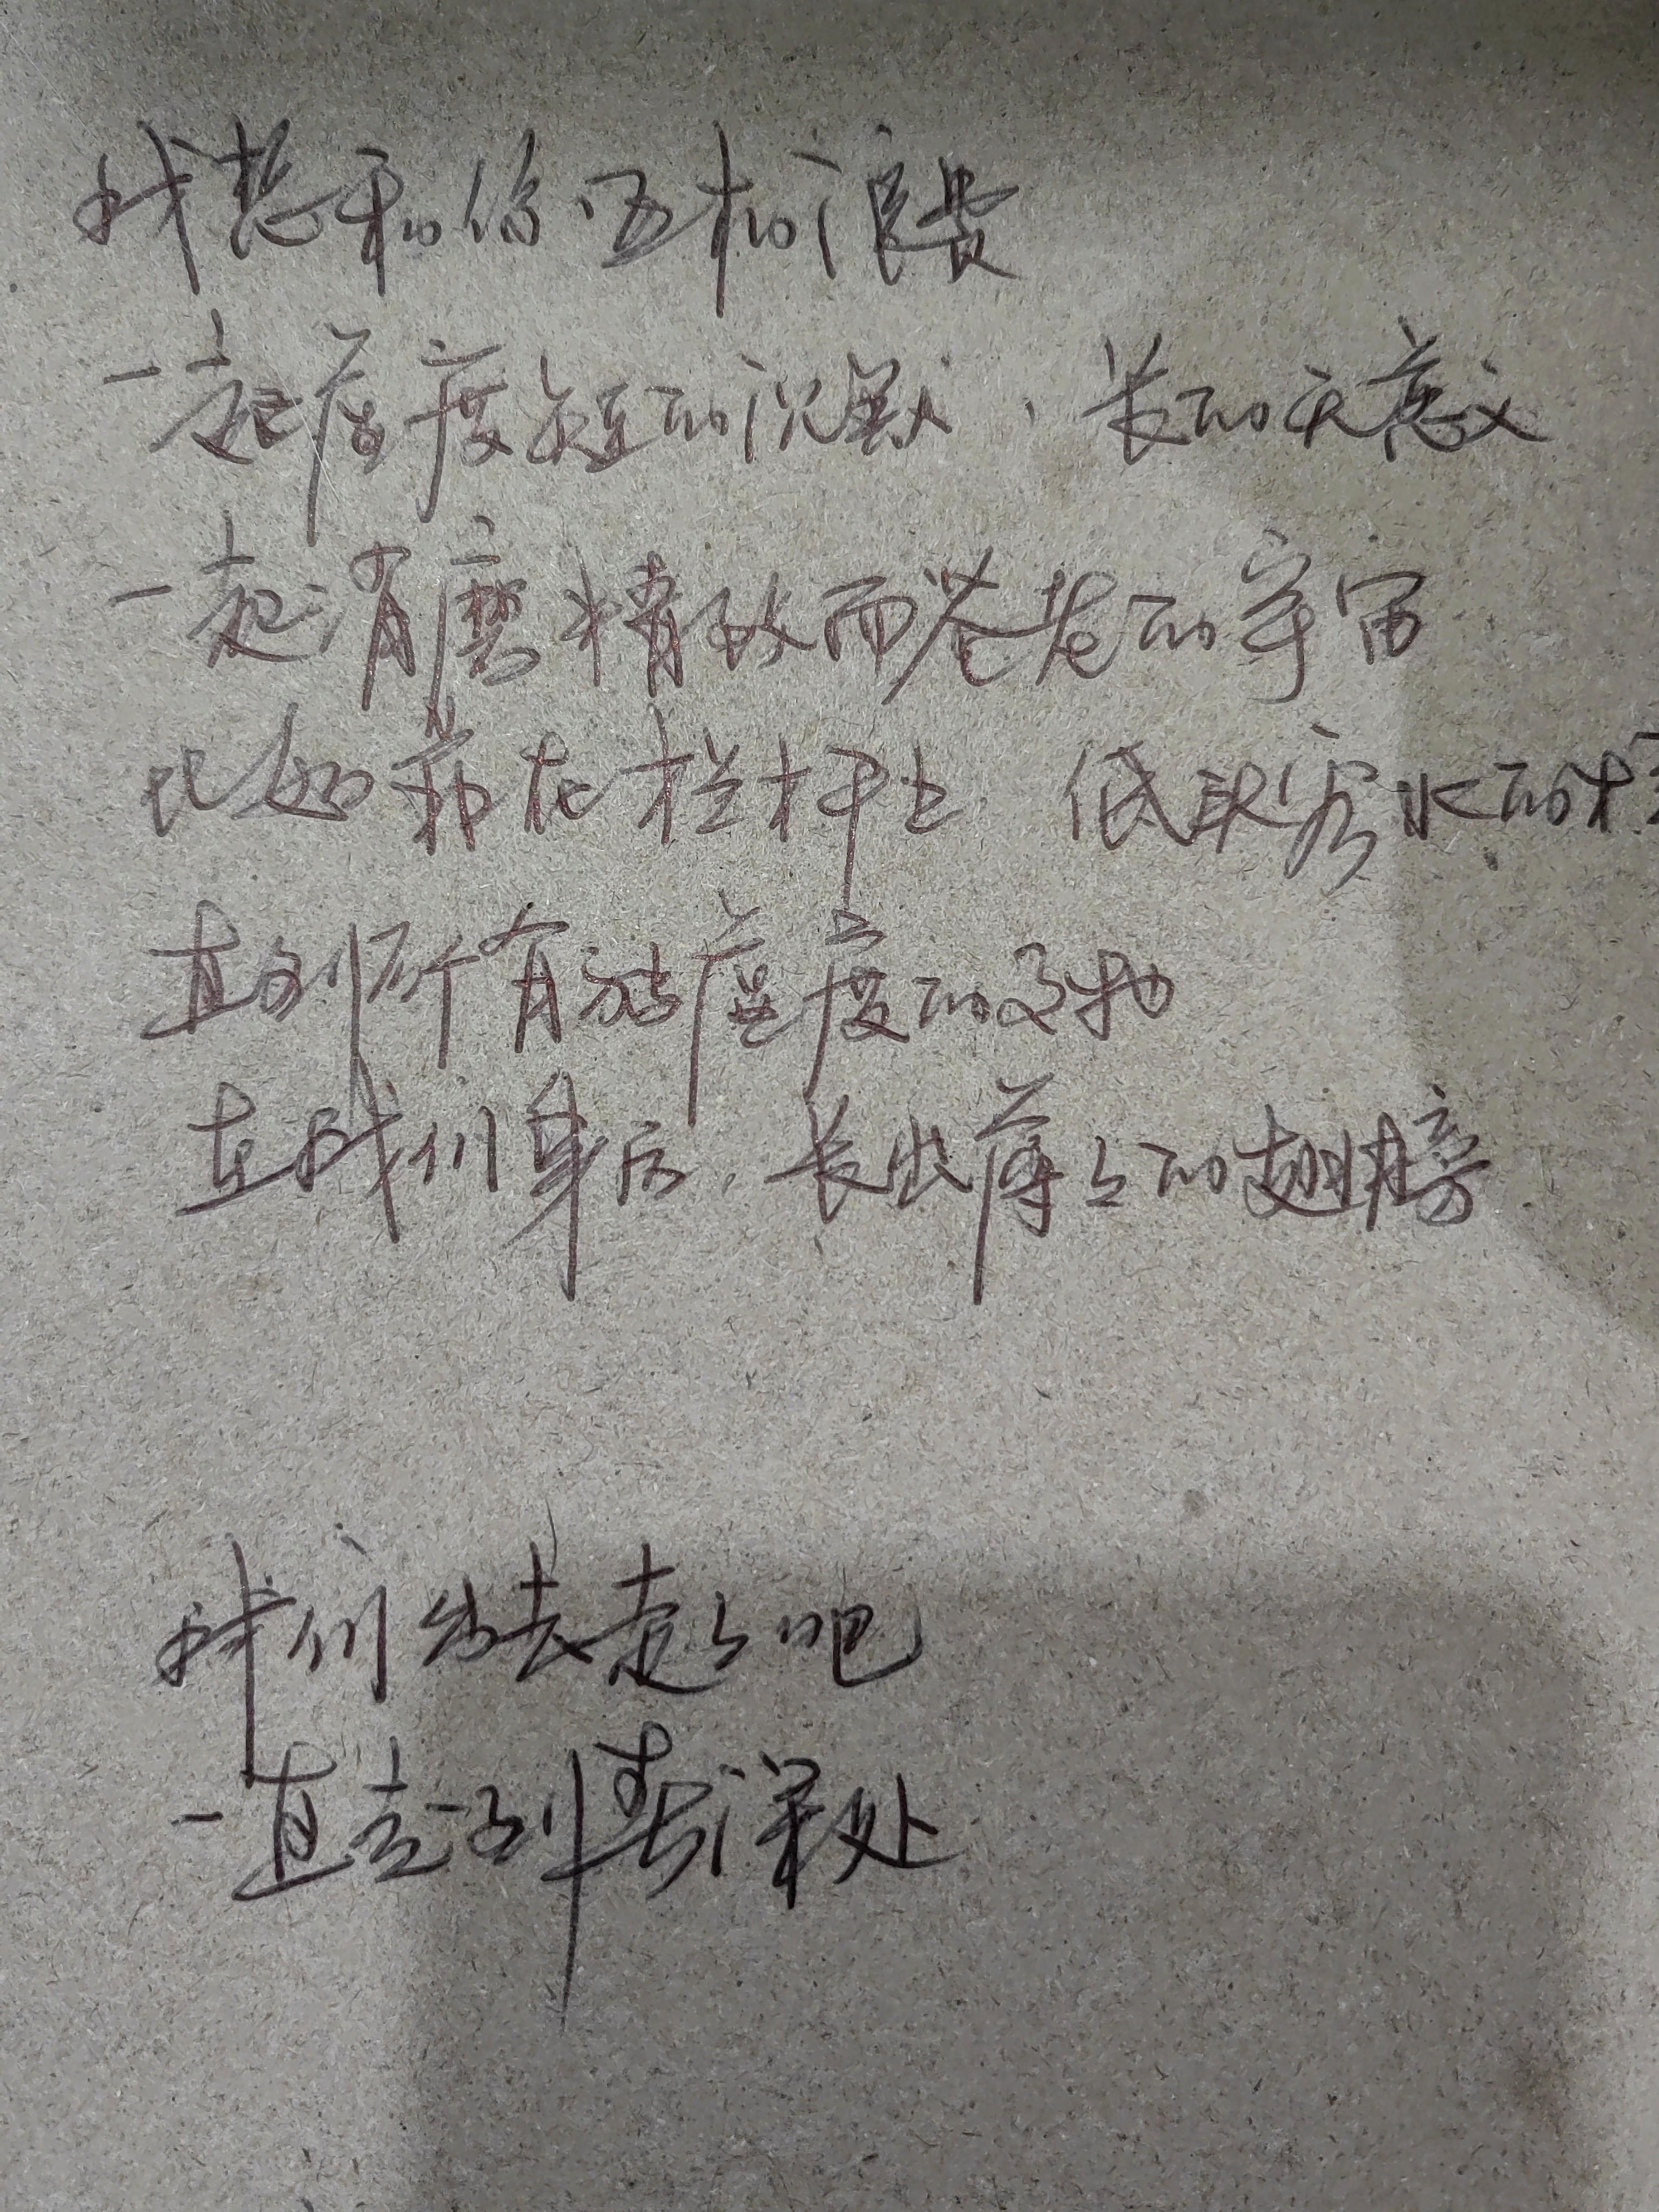 我想和你互相浪费
一起虚度短的沉默，长的无意义
一起消磨精致而苍老的宇宙
比如靠在栏杆上 低头看水的
直到所有被虚度的事物
在我们身后，长出薄薄的翅膀
我们出去走走吧
一直走到春深处